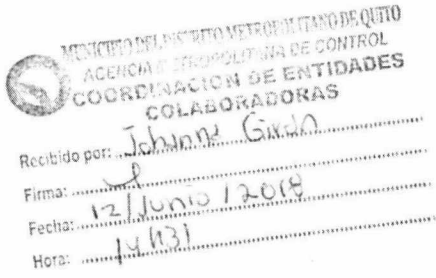 MUNICIPIO DEL DISTRITO METROPOLITANO DE QUITO
AGENCIA METROPOLITANA DE CONTROL
COORDINACION DE ENTIDADES
COLABORADORAS
Recibido por: Johanna Girón
Firma:
Fecha: 12/Junio/2018
Hora: 14h31